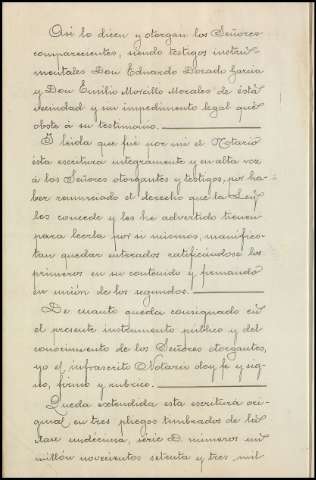 Así lo dicen y otorgan los Señores
comparecientes, siendo testigos instru-
mentales Don Eduardo Dorado Garcia
y Don Emilio Morcillo Morales de ésta
vecindad y sin impedimento legal que
obste á su testimonio.
Y leida que fué por mi el Notario
ésta escritura integramente y en alta voz
á los Señores otorgantes y testigos, por ha-
ber renunciado el derecho que la Ley
les concede y les he advertido tienen
para leerla por si mismos, manifies-
tan quedar enterados ratificándose los
primeros en su contenido y firmando
en unión de los segundos.
De cuanto queda consignado en
el presente instrumento público y del
conocimiento de los Señores otorgantes,
yo el infrascrito Notario doy fe y sig-
no, firmo y rubrico.
Queda extendida esta escritura ori-
ginal en tres pliegos timbrados de la
clase undécima, série D. números un
millón novecientos setenta y tres mil